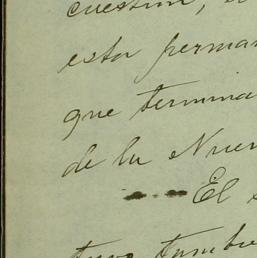 cuestion, 
esta perma
que termina
de la Nue
El
tuvo tambie